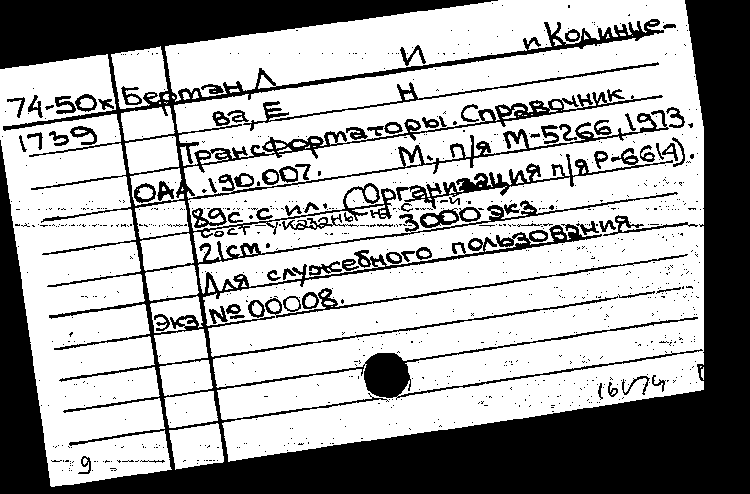 74-50к Бертан, Л И п Кодинце-
1739 ва, Е Н
Трансформаторы. Справочник.
ОАА.190.007. М., п/я М-5266, 1973.
89с. с ил. (Организация п/я Р-6614).
сост указаны на с 4-й.
21см. 3000 экз.
Для служебного пользования.
Экз. № 00008.
16 V 74
9